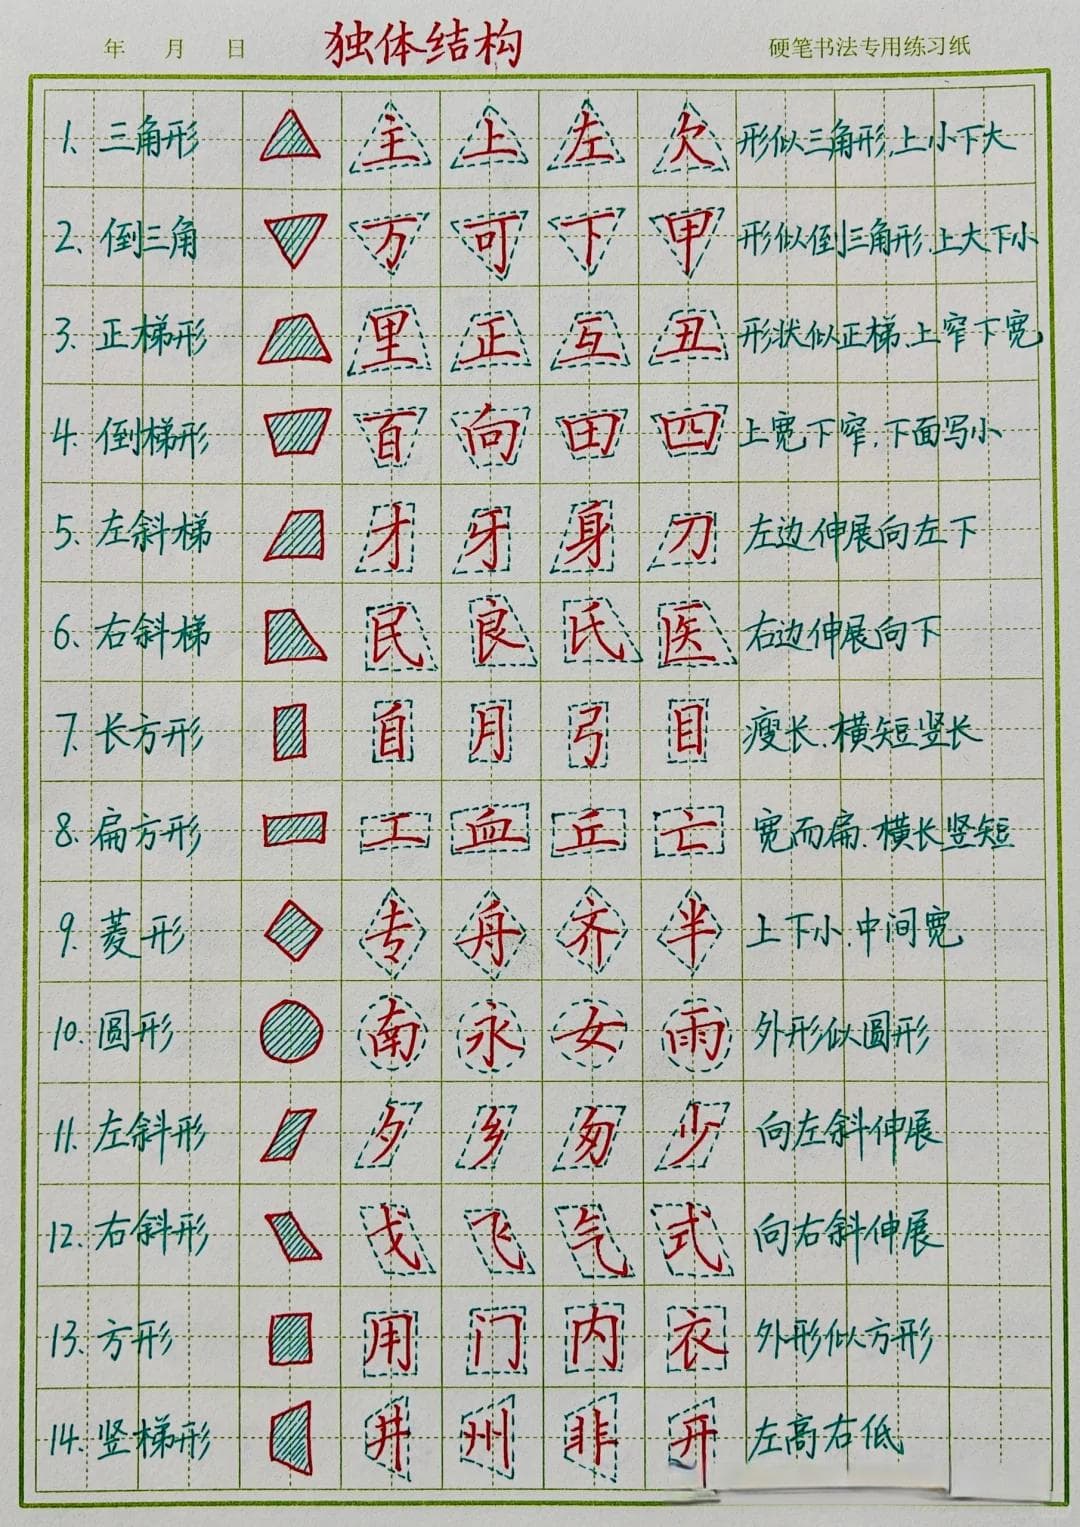 年 月 日 独体结构 硬笔书法专用练习纸
1. 三角形 主 上 左 欠 形似三角形,上小下大
2. 倒三角 万 可 下 甲 形似倒三角形,上大下小
3. 正梯形 里 正 互 丑 形状似正梯.上窄下宽
4. 倒梯形 百 向 田 四 上宽下窄,下面写小
5. 左斜梯 才 牙 身 刀 左边伸展向左下
6. 右斜梯 民 良 氏 医 右边伸展向下
7. 长方形 自 月 弓 目 瘦长.横短竖长
8. 扁方形 工 血 丘 亡 宽而扁.横长竖短
9. 菱形 专 舟 齐 半 上下小.中间宽
10. 圆形 南 永 女 雨 外形似圆形
11. 左斜形 夕 乡 匆 少 向左斜伸展
12. 右斜形 戈 飞 气 式 向右斜伸展
13. 方形 用 门 内 衣 外形似方形
14. 竖梯形 井 州 非 开 左高右低